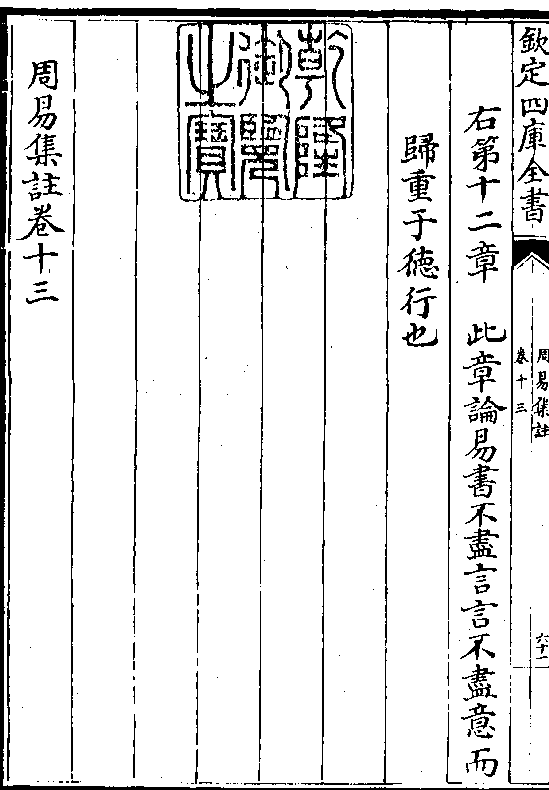 欽定四庫全書
周易集註
卷十三
六十一
右第十二章　此章論易書不盡言言不盡意而
歸重于德行也
乾隆御覽之寶
周易集註卷十三